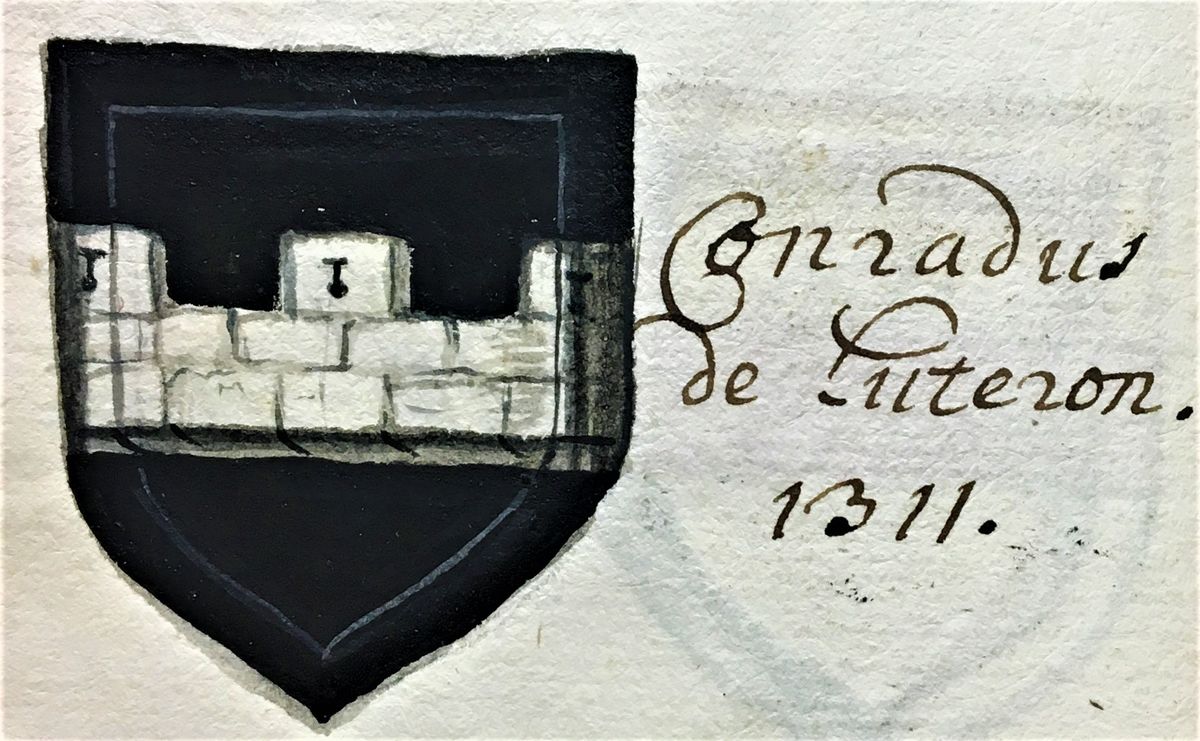 Conradus
de Luteron.
1311.